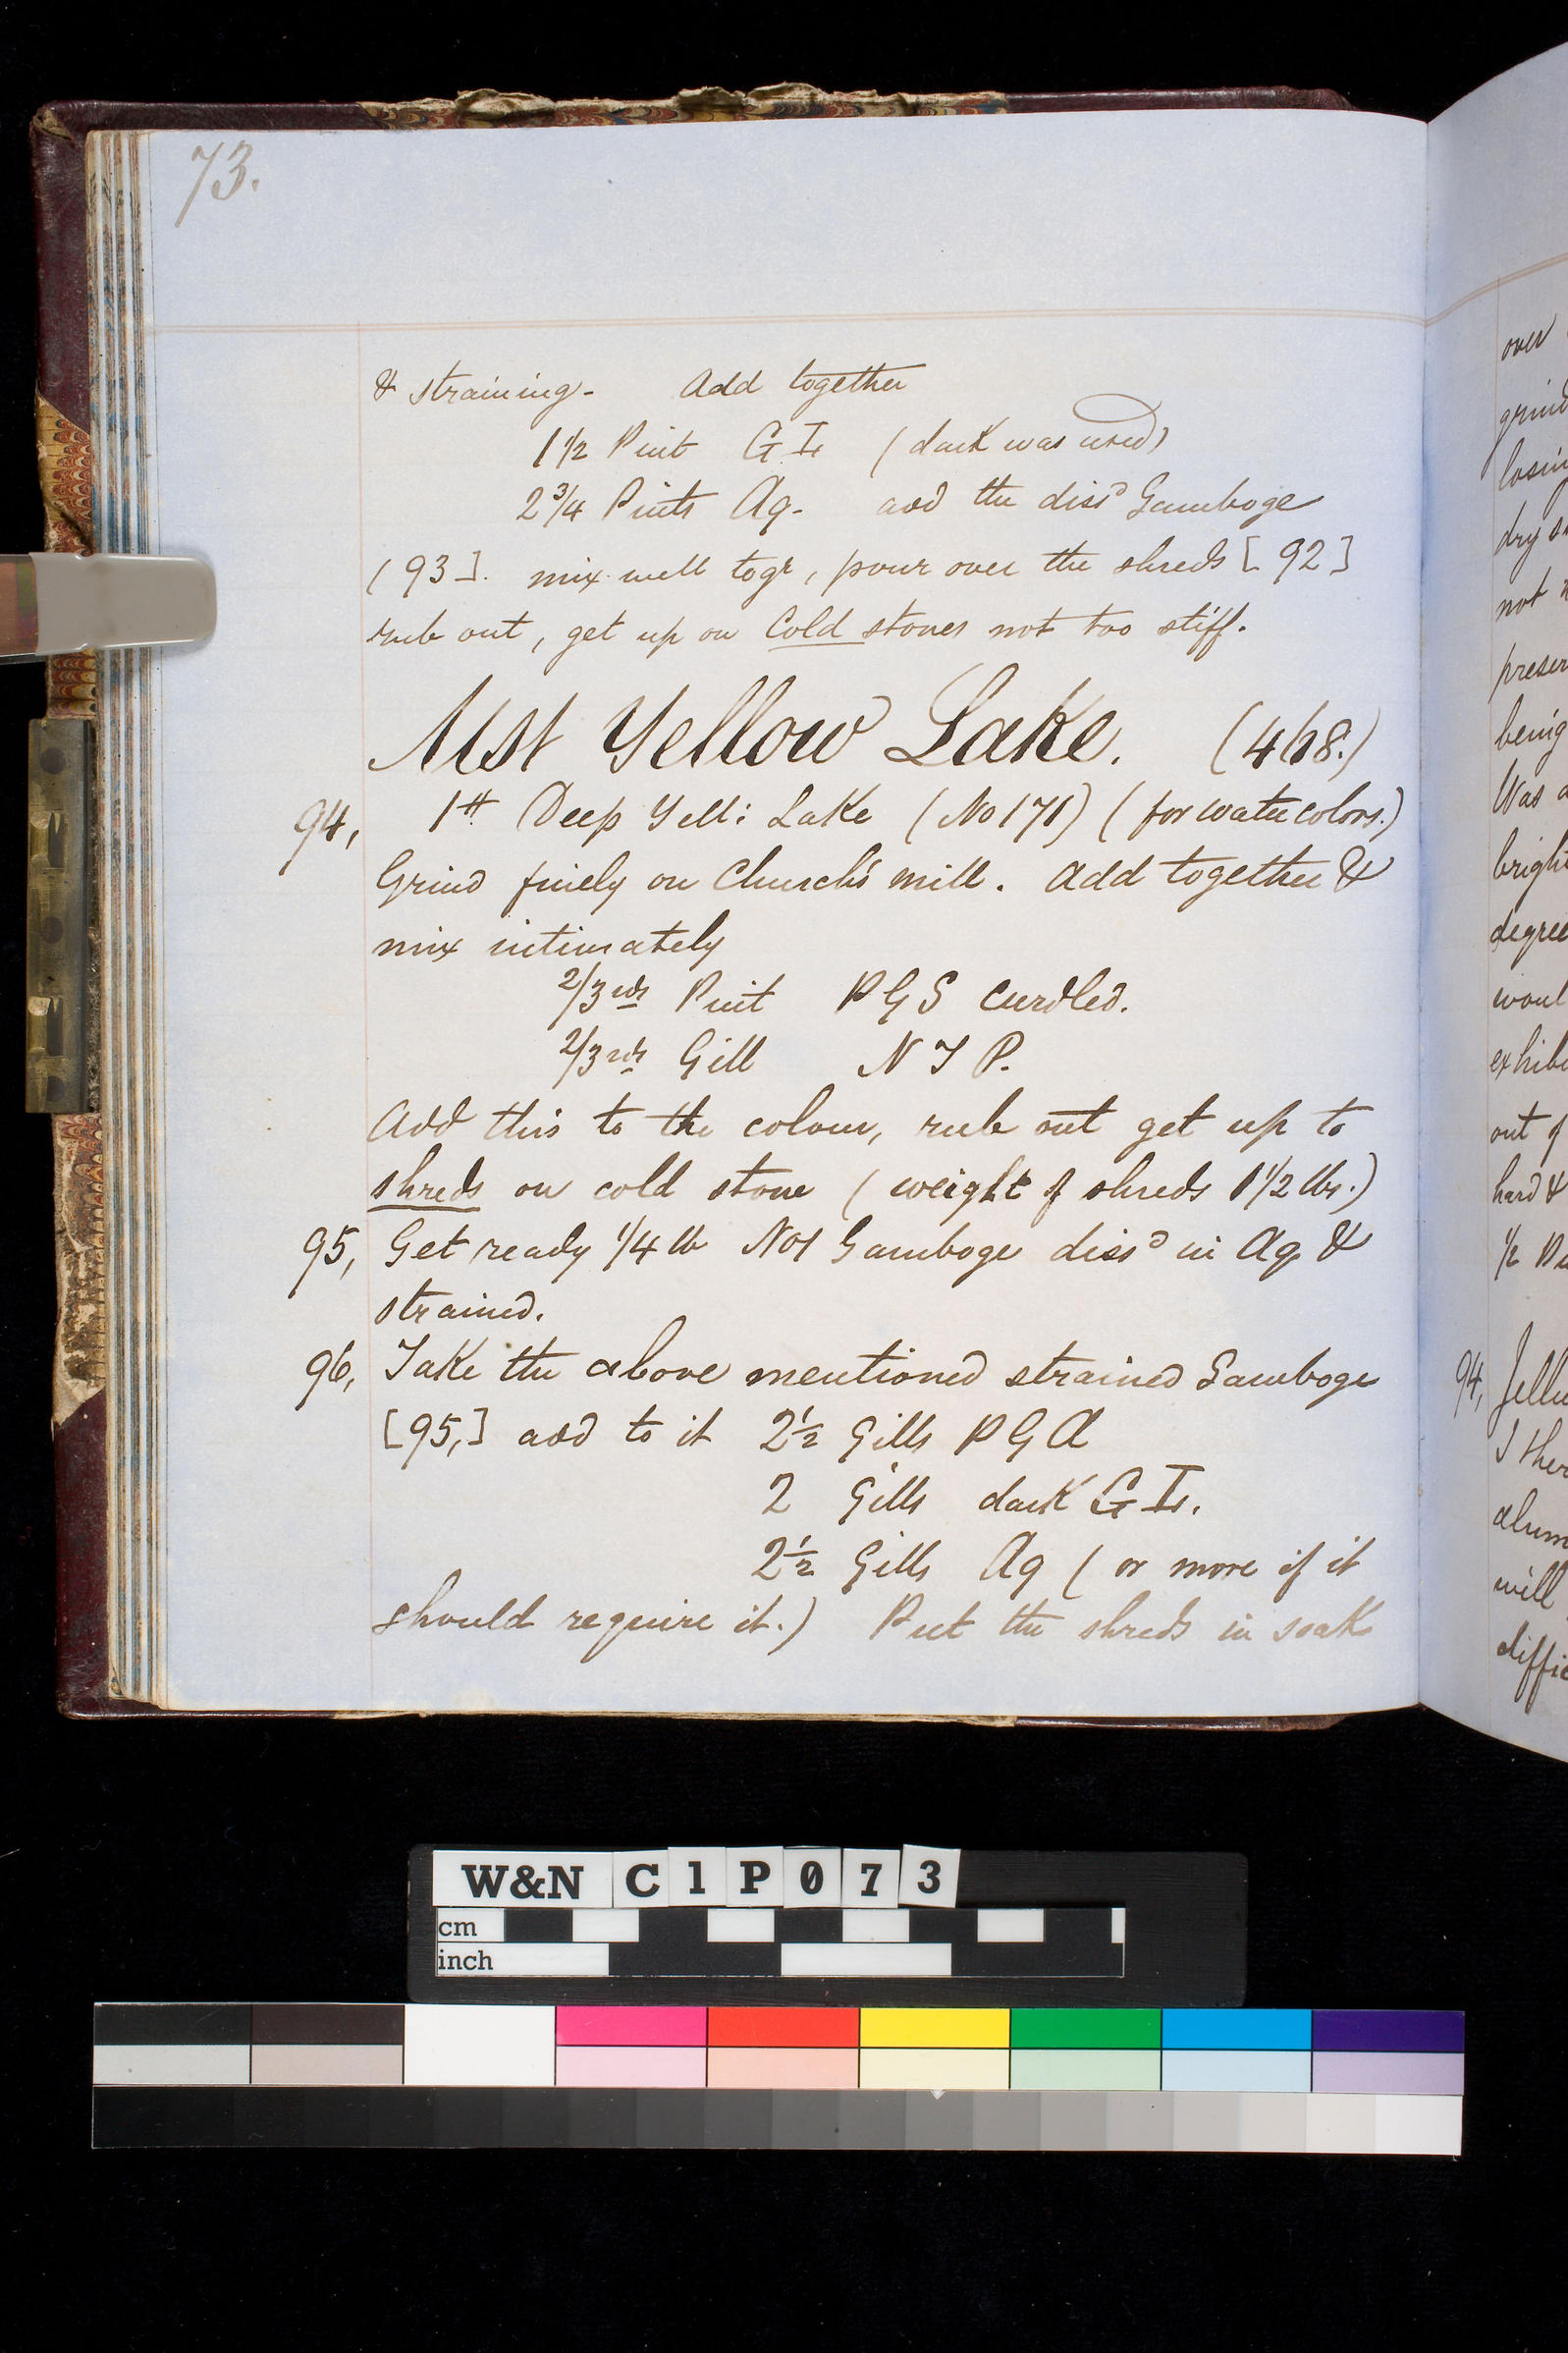 73.
& straining - Add together
1 1/2 Pint G I. (dark was used)
2 3/4 Pints Aq - add the dissd Gamboge
(93]. mix well togr, pour over the shreds [92]
rub out, get up on Cold stones not too stiff.
Mst Yellow Lake. (468.)
94, 1 # Deep Yell: Lake (No 171) (for watercolors.)
Grind finely on Church's mill. Add together &
mix intimately
2/3rds Pint P G S Curdled.
2/3rds Gill N T P.
Add this to the colour, rub out get up to
shreds on cold stone (weight of shreds 1 1/2 lbs.)
95, Get ready 1/4 lb No 1 Gamboge dissd in Aq &
strained.
96, Take the above mentioned strained Gamboge
[95,] add to it 2 1/2 Gills P G A
2 Gills dark G I.
2 1/2 Gills Aq (or more if it
should require it.) Put the shreds in soak
over
losin
not
being
Was a
degree
out of
hard &
94,
will
W&N C1P073
cm
inch